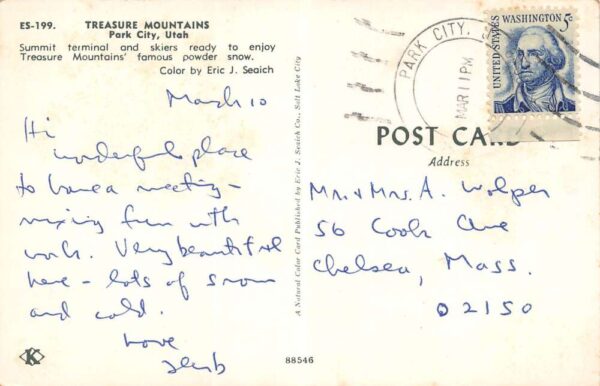 ES-199. TREASURE MOUNTAINS
Park City, Utah
Summit terminal and skiers ready to enjoy
Treasure Mountains' famous powder snow.
Color by Eric J. Seaich
March 10
Hi
wonderful place
to have a meeting -
mixing fun with
work. Very beautiful
here - lots of snow
and cold.
Love
Herb
K
A Natural Color Card Published by Eric J. Seaich Co., Salt Lake City
88546
PARK CITY,
MAR 11 PM
UNITED STATES
WASHINGTON 5c
POST CARD
Address
Mr. & Mrs. A. Wolper
56 Cook Ave
Chelsea, Mass.
02150